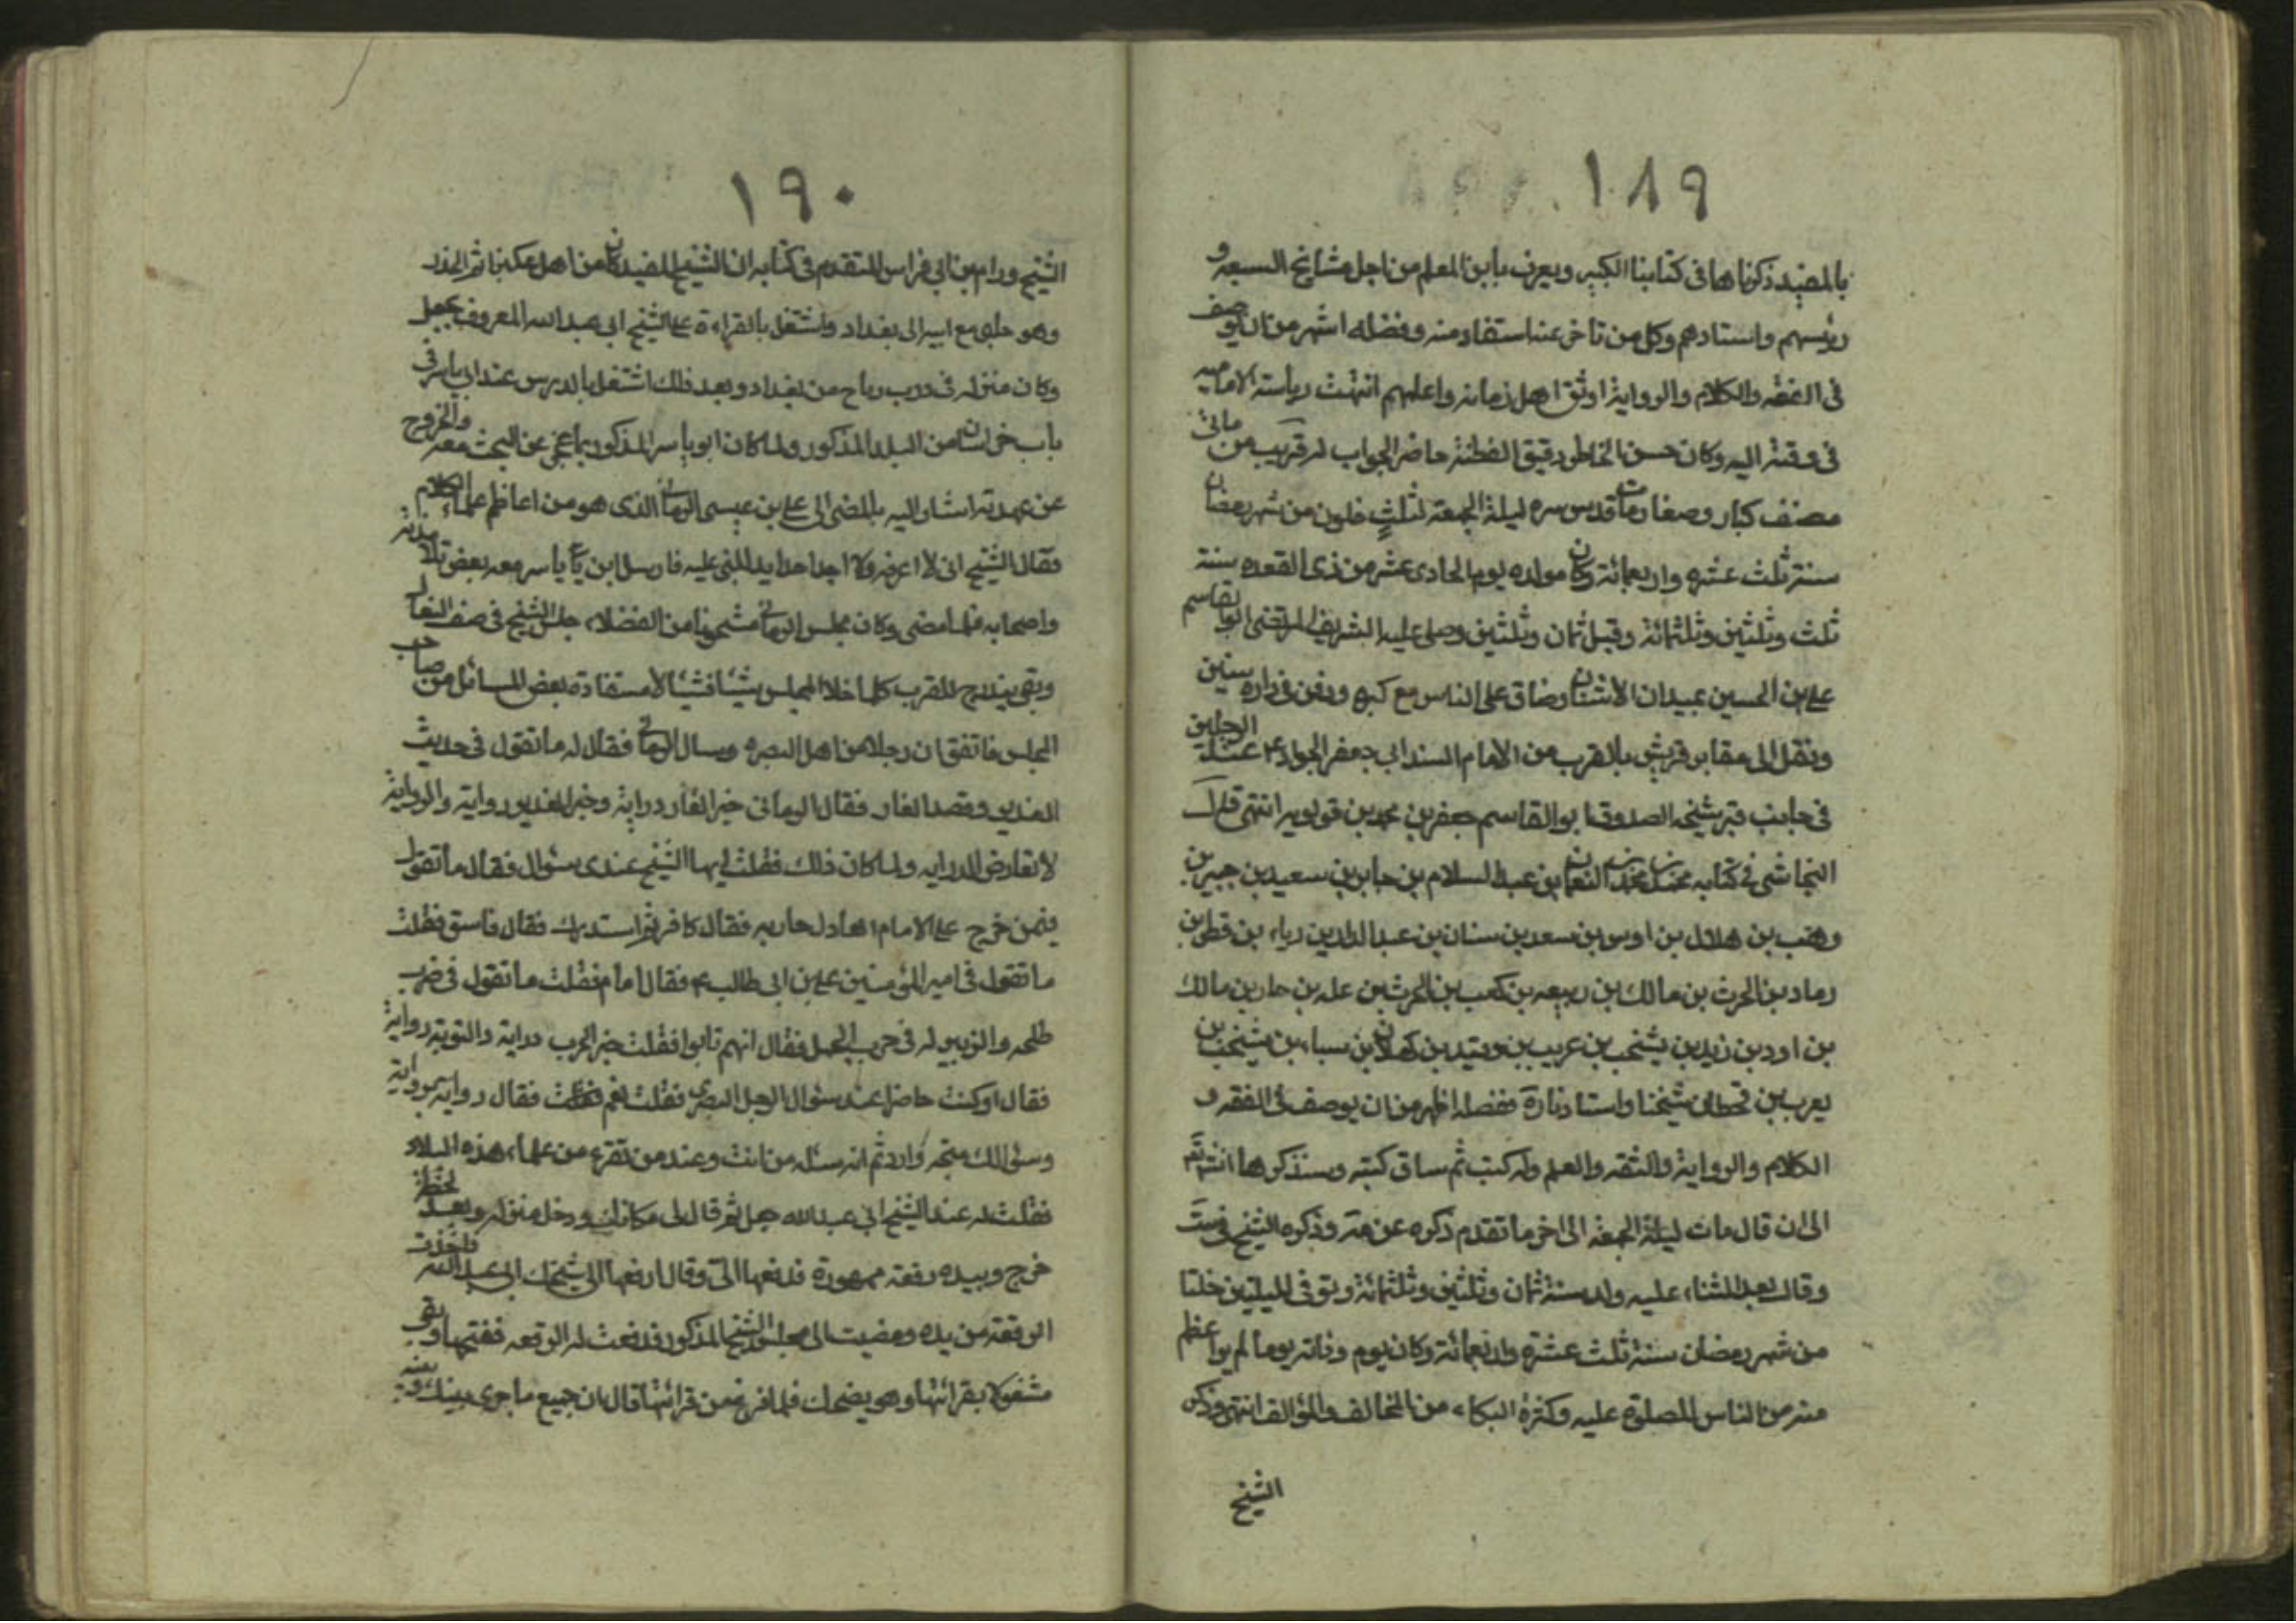 ١٨٩
بالمفيد ذكرناها في كتابنا الكبير ويعرف بابن المعلم من اجل مشائخ الشيعة و
رئيسهم واستادهم وكل من تاخر عنه استفاد منه وفضله اشهر من ان يوصف
في الفقه والكلام والرواية اوثق اهل زمانه واعلمهم انتهت رياسته الامامية
في وقته اليه وكان حسن الخاطر دقيق الفطنة حاضر الجواب له قريب من مائتي
مصنف كبار وصغار مات قدس سره ليلة الجمعة لثلث خلون من شهر رمضان
سنة ثلث عشره واربعمائة وكان مولده يوم الحادي عشر من ذي القعده سنة
ثلث وثلثين وثلثمائة وقيل ثمان وثلثين وصلى عليه الشريف المرتضى ابوالقاسم
علي بن الحسين بميدان الاشنان وضاق على الناس مع كبره ودفن في داره سنين
ونقل الى مقابر قريش بالقرب من الامام السند ابي جعفر الجواد ع عند الرجلين
في جانب قبر شيخه الصدوق ابو القاسم جعفر بن محمد بن قولويه انتهى قال
النجاشي في كتابه محمد بن محمد بن النعمان بن عبد السلام بن جابر بن سعيد بن جبير بن
وهب بن هلال بن اوس بن سعد بن سنان بن عبد الدار بن ريا بن قطر بن
زماد بن الحرث بن مالك بن ربيعه بن كعب بن الحرث بن عله بن حار بن مالك
بن اود بن زيد بن يشخب بن عريب بن زيد بن كهلان بن سبا بن يشخب بن
يعرب بن قحطان شيخنا واستادنا ره فضله اظهر من ان يوصف في الفقه و
الكلام والرواية والثقه والعلم وله كتب ثم ساق كتبه وسنذكرها انش تع
الى ان قال مات ليلة الجمعة الى اخر ما تقدم ذكره عن مة وذكره الشيخ في ست
وقال بعد الثناء عليه ولد سنة ثمان وثلثين وثلثمائة وتوفى لليلتين خلتا
من شهر رمضان سنة ثلث عشرة واربعمائة وكان يوم وفاته يوما لم ير اعظم
منه من الناس للصلوة عليه وكثرة البكاء من المخالف والمؤالف انتهى وذكر
الشيخ
١٩٠
الشيخ ورام بن ابي فراس المتقدم في كتابه ان الشيخ المفيد كان من اهل عكبرا ثم انحدر
وهو صبي مع ابيه الى بغداد واشتغل بالقراءة على الشيخ ابي عبد الله المعروف بجعل
وكان منزله في درب رباح من بغداد وبعد ذلك اشتغل بالدرس عند ابي ياسر في
باب خراسان من البلد المذكور ولما كان ابو ياسر المذكور ربما عجز عن البحث معه والخروج
عن عهدته اشار اليه بالمضي الى علي بن عيسى الرماني الذي هو من اعاظم علماء الكلام
فقال الشيخ اني لا اعرفه ولا اجد احدا يدلني عليه فارسل ابو ياسر معه بعض تلامذته
واصحابه فلما مضى وكان مجلس الرماني مشحونا من الفضلاء جلس الشيخ في صف النعال
وبقى يتدرج للقرب كلما خلا المجلس شيئا فشيئا لاستفادة بعض المسائل من صاحب
المجلس فاتفق ان رجلا من اهل البصره وسال الرماني فقال له ما تقول في حديث
الغدير وقصه الغار فقال الرماني خبر الغار دراية وخبر الغدير رواية والرواية
لا تعارض الدرايه ولما كان ذلك فقلت ايها الشيخ عندي سئوال فقال ما تقول
فيمن خرج على الامام العادل حاربه فقال كافر ثم استدرك فقال فاسق فقلت
ما تقول في امير المؤمنين علي بن ابي طالب ع فقال امام فقلت ما تقول في حرب
طلحه والزبير له في حرب الجمل فقال انهم تابوا فقلت خبر الحرب دراية والتوبة رواية
فقال اوكنت حاضرا عند سئوال الرجل البصري فقلت نعم فقال رواية برواية
وسئوالك متجه وارد ثم انه سئله من انت وعند من تقرء من علماء هذه البلاد
فقلت له عند الشيخ ابي عبد الله جعل ثم قال لي مكانك ودخل منزله وبعد لحظة
خرج وبيده رقعة ممهورة فدفعها الي وقال ارفعها الى شيخك ابي عبد الله فاخذت
الرقعة من يده ومضيت الى مجلس الشيخ المذكور فدفعت له الرقعه ففتحها وبقى
مشغولا بقرائتها وهو يضحك فلما فرغ من قرائتها قال ان جميع ما جرى بينك وبينه